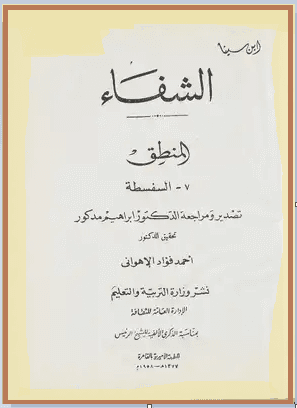 ابن سينا
الشفاء
المنطق
٧ - السفسطة
تصدير ومراجعة الدكتور ابراهيم مدكور
تحقيق الدكتور
احمد فؤاد الإهوانى
نشر وزارة التربية والتعليم
الإدارة العامة للثقافة
بمناسبة الذكرى الألفية للشيخ الرئيس
المطبعة الأميرية بالقاهرة
١٣٧٧ هـ - ١٩٥٨ م